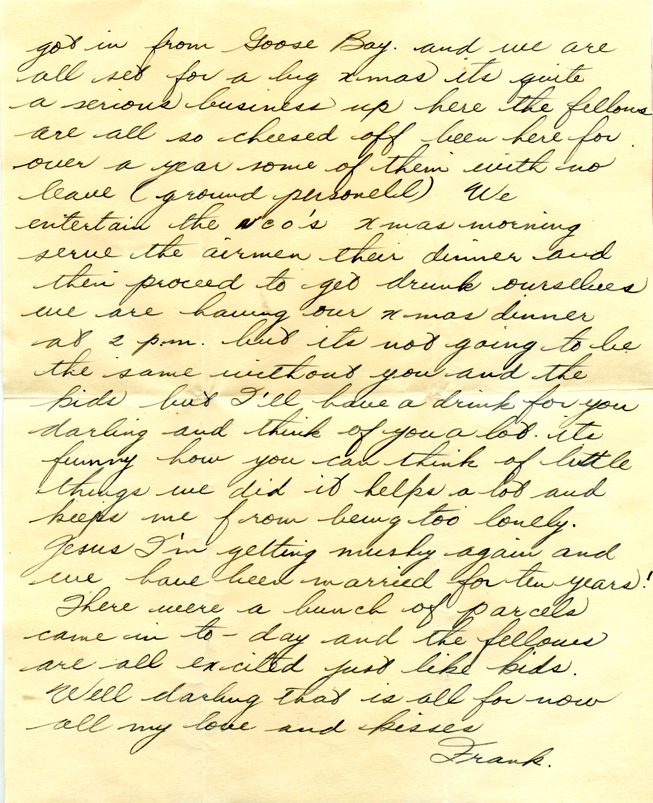 got in from Goose Bay. and we are
all set for a big xmas its quite
a serious business up here the fellows
are all so cheesed off been here for
over a year some of them with no
leave (ground personell) We
entertain the nco's xmas morning
serve the airmen their dinner and
then proceed to get drunk ourselves
we are having our xmas dinner
at 2 p.m. but its not going to be
the same without you and the
kids but I'll have a drink for you
darling and think of you a lot. its
funny how you can think of little
things we did it helps a lot and
keeps me from being too lonely.
Jesus I'm getting mushy again and
we have been married for ten years!
There were a bunch of parcels
came in to-day and the fellows
are all excited just like kids.
Well darling that is all for now
all my love and kisses
Frank.